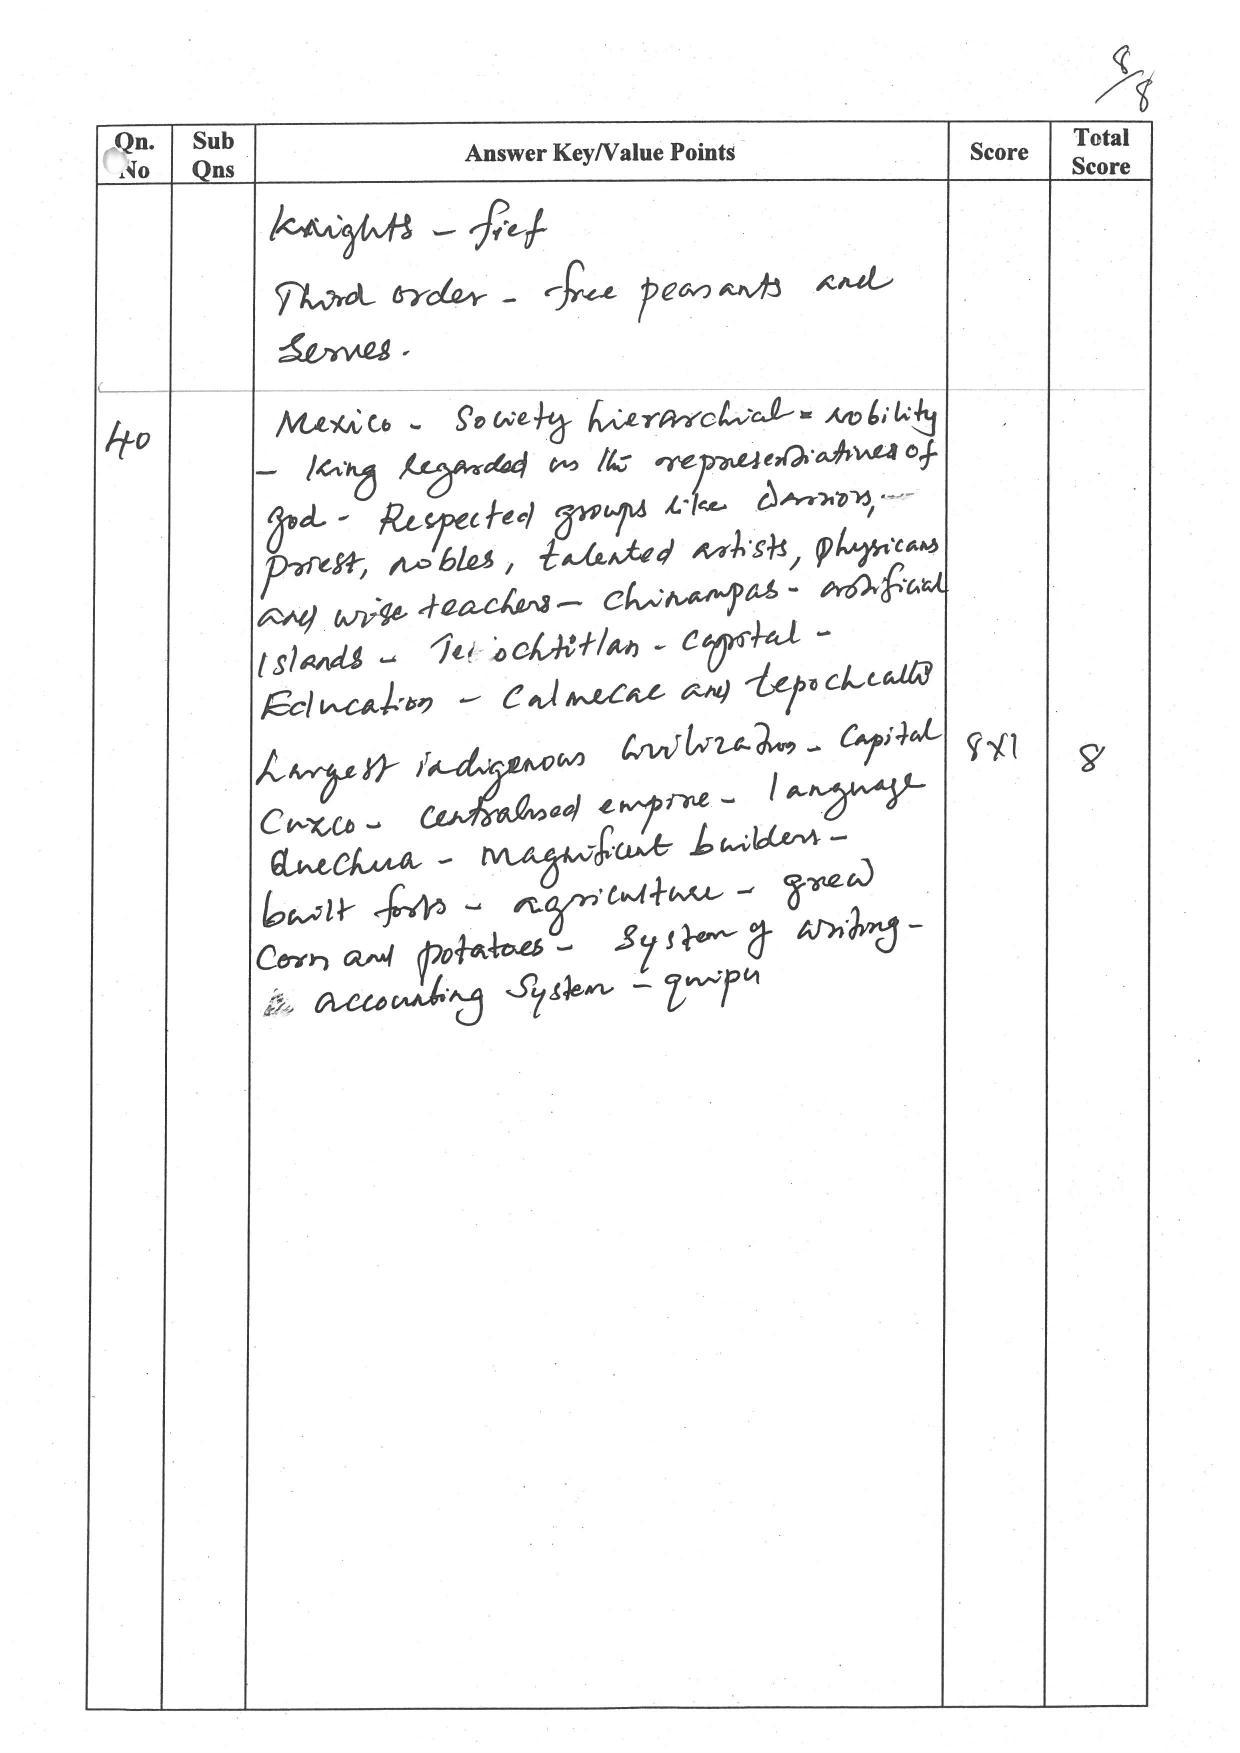 8/8
Qn. No
Sub Qns
Answer Key/Value Points
Score
Total Score
Knights - fief
Third order - free peasants and
Serves.
40
Mexico - Society hierarchial = nobility
- King regarded as the representiatives of
god - Respected groups like warriors,
priest, nobles, talented artists, physicans
and wise teachers - Chinampas - artificial
Islands - Te ochtitlan - capital -
Education - Calmecac and tepochcallis
Largest indigenous civilization - Capital
Cuzco - centralised empire - language
Quechua - Magnificent builders -
built forts - agriculture - grew
Corn and potatoes - System of writing -
accounting System - quipu
8X1
8